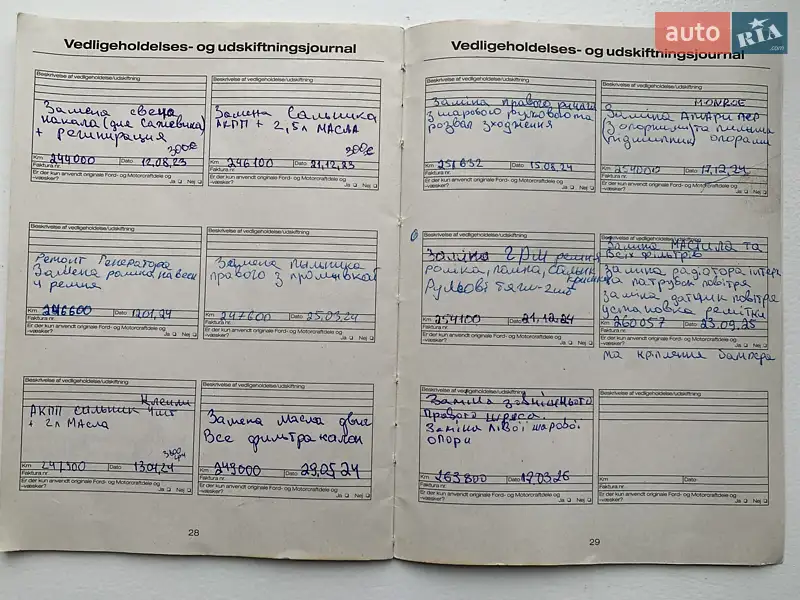 auto RIA .com
Vedligeholdelses- og udskiftningsjournal
Beskrivelse af vedligeholdelse/udskiftning
Замена свечи
накала (два
+ регинирация
300€
Km 244000 Dato 12,08,23
Faktura nr.
Er der kun anvendt originale Ford- og Motorcraftdele og
-væsker? Ja Nej
Beskrivelse af vedligeholdelse/udskiftning
Замена Сальника
АКПП + 2,5л МАСЛА
300€
Km 246100 Dato 21,12,23
Faktura nr.
Er der kun anvendt originale Ford- og Motorcraftdele og
-væsker? Ja Nej
Beskrivelse af vedligeholdelse/udskiftning
Ремонт Генератора
Замена ролика, навесн
4 ремня
Km 246600 Dato 1201,24
Faktura nr.
Er der kun anvendt originale Ford- og Motorcraftdele og
-væsker? Ja Nej
Beskrivelse af vedligeholdelse/udskiftning
Замена пыльника
правого з промывкой
Km 247600 Dato 25.03.24
Faktura nr.
Er der kun anvendt originale Ford- og Motorcraftdele og
-væsker? Ja Nej
Beskrivelse af vedligeholdelse/udskiftning
Клеили
АКПП сальник 4шт
+ 2л МАСЛА
3300
грн
Km Dato 13.04.24
Faktura nr.
Er der kun anvendt originale Ford- og Motorcraftdele og
-væsker? Ja Nej
Beskrivelse af vedligeholdelse/udskiftning
Замена масла двиг
Все фильтра + салон
Km 249000 Dato 29,05,24
Faktura nr.
Er der kun anvendt originale Ford- og Motorcraftdele og
-væsker? Ja Nej
28
Vedligeholdelses- og udskiftningsjournal
Beskrivelse af vedligeholdelse/udskiftning
Заміна правого ричага
з шаровою, рульового та
розвал зходження
Km 251632 Dato 15.08.24
Faktura nr.
Er der kun anvendt originale Ford- og Motorcraftdele og
-væsker? Ja Nej
Beskrivelse af vedligeholdelse/udskiftning
MONROE
Заміна Амари пер
(з опорними та пильник
підшипник) опорами
Km 254000 Dato 17.12.24
Faktura nr.
Er der kun anvendt originale Ford- og Motorcraftdele og
-væsker? Ja Nej
Beskrivelse af vedligeholdelse/udskiftning
Заміна ГРМ ремня
роліка, помпа, сальник
Рульові тяги - 2шт
Km 254100 Dato 21,12,24
Faktura nr.
Er der kun anvendt originale Ford- og Motorcraftdele og
-væsker? Ja Nej
Beskrivelse af vedligeholdelse/udskiftning
Заміна МАСТИЛА та
Всіх фільтрів
заміна радіатора інтерк
та патрубок повітря
заміна датчик повітря
установка решітки
Km 260057 Dato 23.09.25
Faktura nr.
Er der kun anvendt originale Ford- og Motorcraftdele og
-væsker? Ja Nej
та кріплення бампера
Beskrivelse af vedligeholdelse/udskiftning
Заміна зовнішнього
правого шруса.
Заміна лівої шарової
опори
Km 263800 Dato 12.03.26
Faktura nr.
Er der kun anvendt originale Ford- og Motorcraftdele og
-væsker? Ja Nej
Beskrivelse af vedligeholdelse/udskiftning
Km Dato
Faktura nr.
Er der kun anvendt originale Ford- og Motorcraftdele og
-væsker? Ja Nej
29